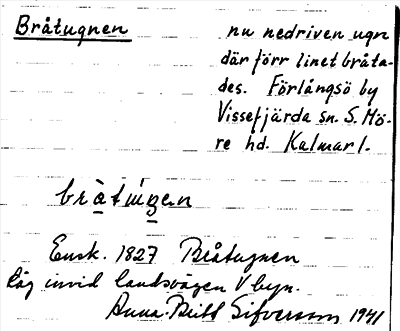 Bråtugnen
nu nedriven ugn
där förr linet bråta-
des. Förlångsö by
Vissefjärda sn. S. Mö-
re hd. Kalmar l.
bråtuŋen
Ensk. 1827 Bråtugnen
låg invid landsvägen V byn.
Anna-Britt Sifversson 1941